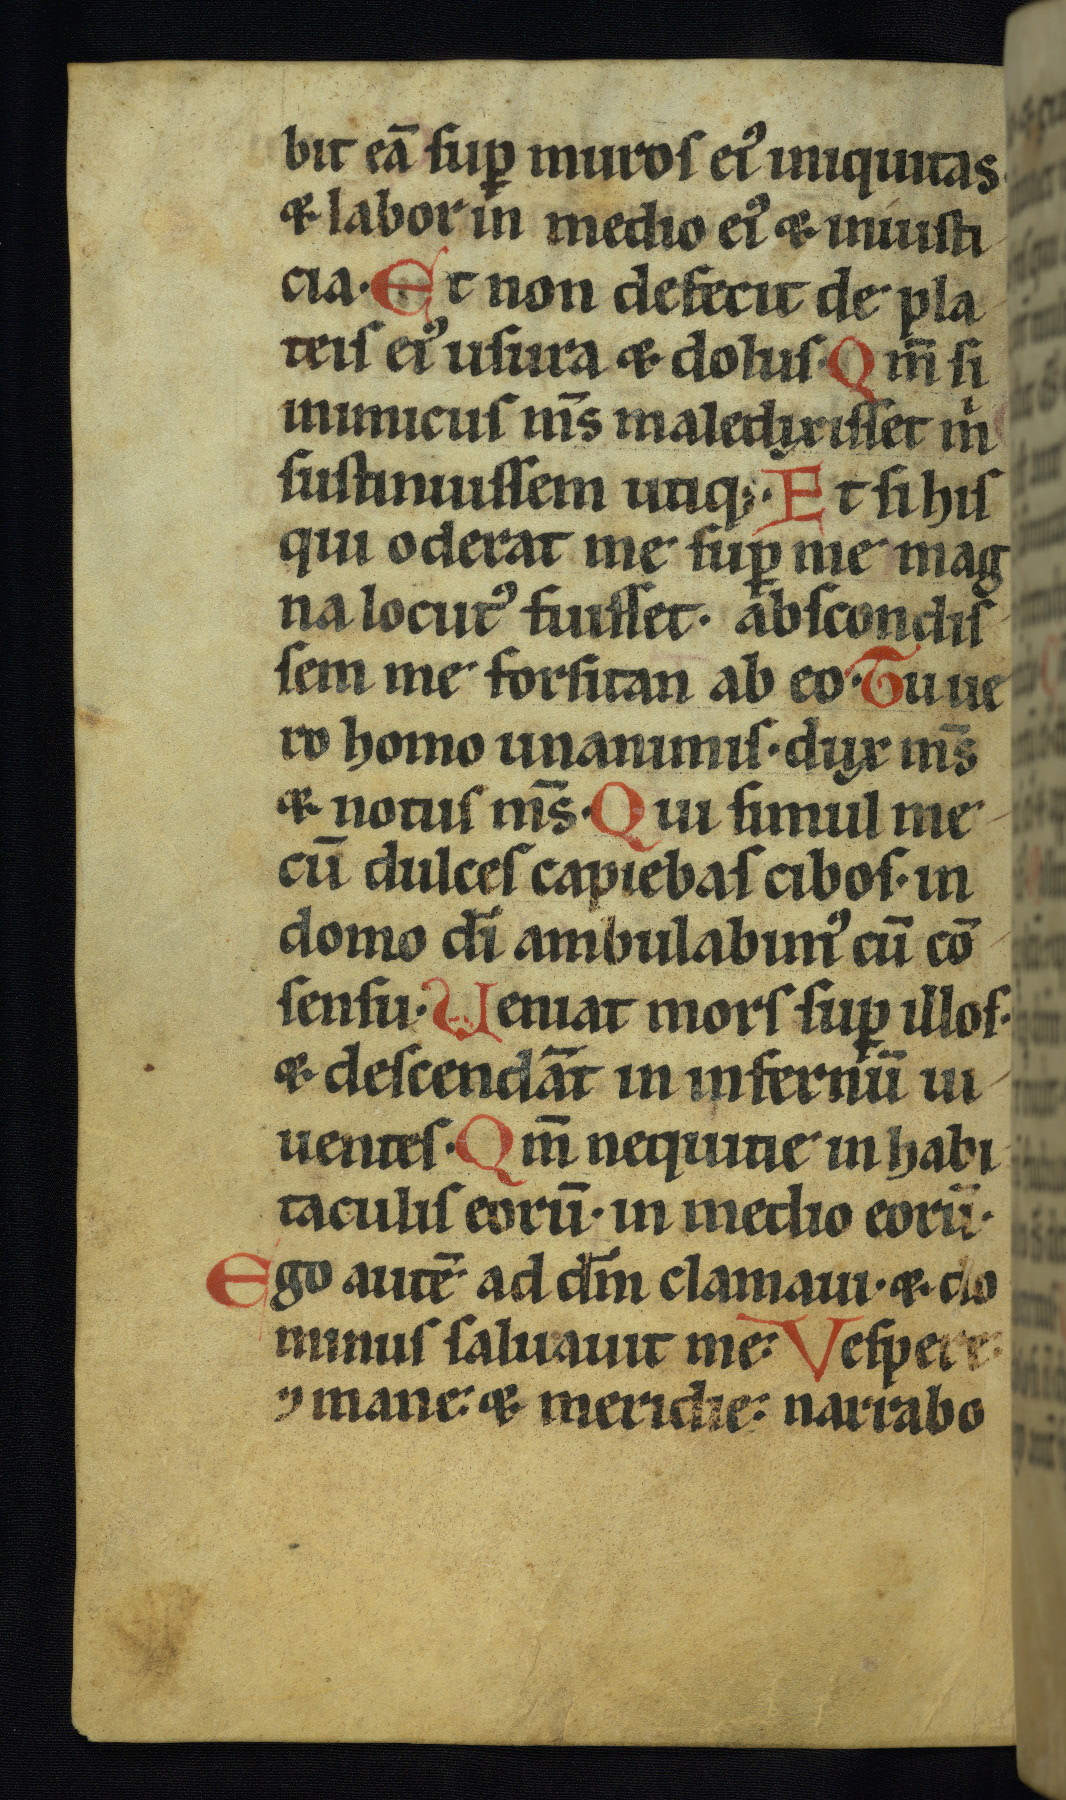 bit eā sup̱ muros ei⁹ iniquitas·
⁊ labor in medio ei⁹ ⁊ iniusti
cia· Et non defecit de pla
teis ei⁹ usura ⁊ dolus· Qm̄ si
inimicus m̄s maledixisset m̄
sustinuissem utiq;· Et si his
qui oderat me sup̱ me mag
na locut⁹ fuisset· abscondis
sem me forsitan ab eo· Tu ue
ro homo unanimis· dux m̄s
⁊ notus m̄s· Qui simul me
cū dulces capiebas cibos· in
domo dī ambulabim⁹ cū cō
sensu· Ueniat mors sup̱ illos·
⁊ descendāt in infernū ui
uentes· Qm̄ nequitie in habi
taculis eorū· in medio eorū·
Ego autē ad dm̄ clamaui· ⁊ do
minus saluauit me: Vespere:
⁊ mane: ⁊ meridie: narrabo